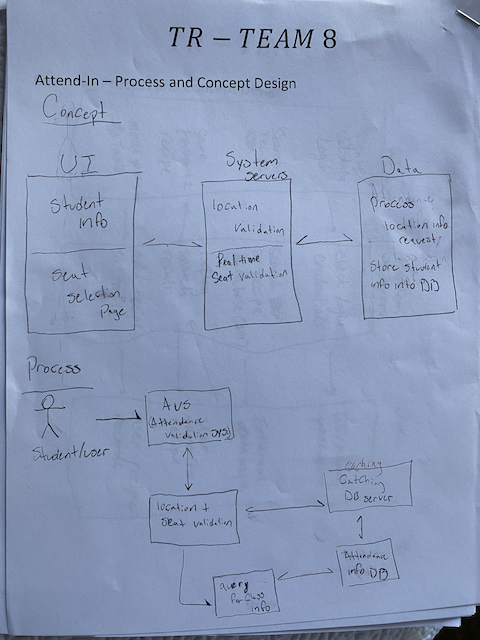 TR – TEAM 8
Attend-In – Process and Concept Design
Concept
UI
Student
info
Seat
Selection
Page
System
servers
location
validation
Real time
Seat validation
Data
Process
location info
request
Store Student
info into DB
Process
Student/user
AVS
(Attendance
validation SYS)
location +
Seat validation
caching
Catching
DB server
Attendance
info DB
query
for class
info